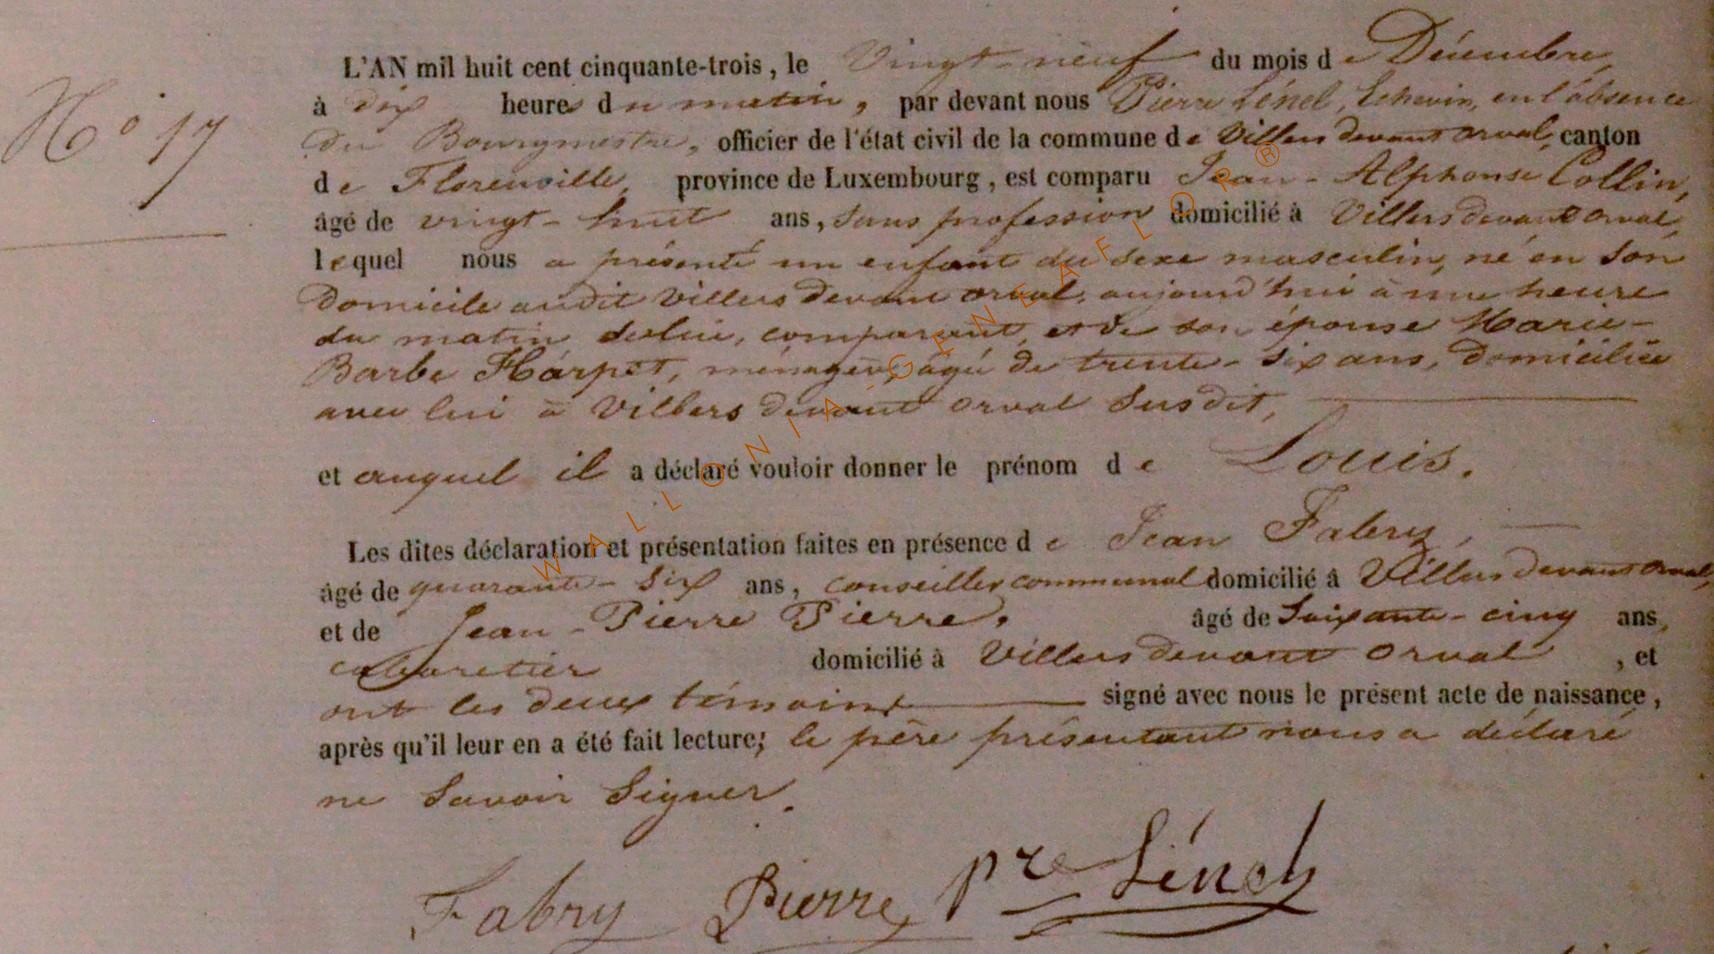 N° 17
L'AN mil huit cent cinquante-trois, le Vingt-neuf du mois de Décembre,
à dix heures du matin, par devant nous Pierre Lénel, Echevin, en l'absence
du Bourgmestre, officier de l'état civil de la commune de Villers devant orval, canton
de Florenville, province de Luxembourg, est comparu Jean-Alphonse Collin,
âgé de vingt-huit ans, sans profession domicilié à Villers devant orval,
lequel nous a présenté un enfant du sexe masculin, né en son
domicile audit Villers devant orval, aujourd'hui à une heure
du matin de lui, comparant, et de son épouse Marie-
Barbe Harpet, ménagère, agée de trente-six ans, domiciliée
avec lui à Villers devant orval susdit,
et auquel il a déclaré vouloir donner le prénom de Louis.
Les dites déclaration et présentation faites en présence de Jean Fabry,
âgé de quarante-six ans, conseiller communal domicilié à Villers devant orval,
et de Jean-Pierre Pierre, âgé de Soixante-cinq ans,
cabaretier domicilié à Villers devant orval, et
ont les deux témoins signé avec nous le présent acte de naissance,
après qu'il leur en a été fait lecture; le père présentant nous a déclaré
ne Savoir Signer.
Fabry Pierre Pre Lénel
WALLONIA-GENEAFLOR®